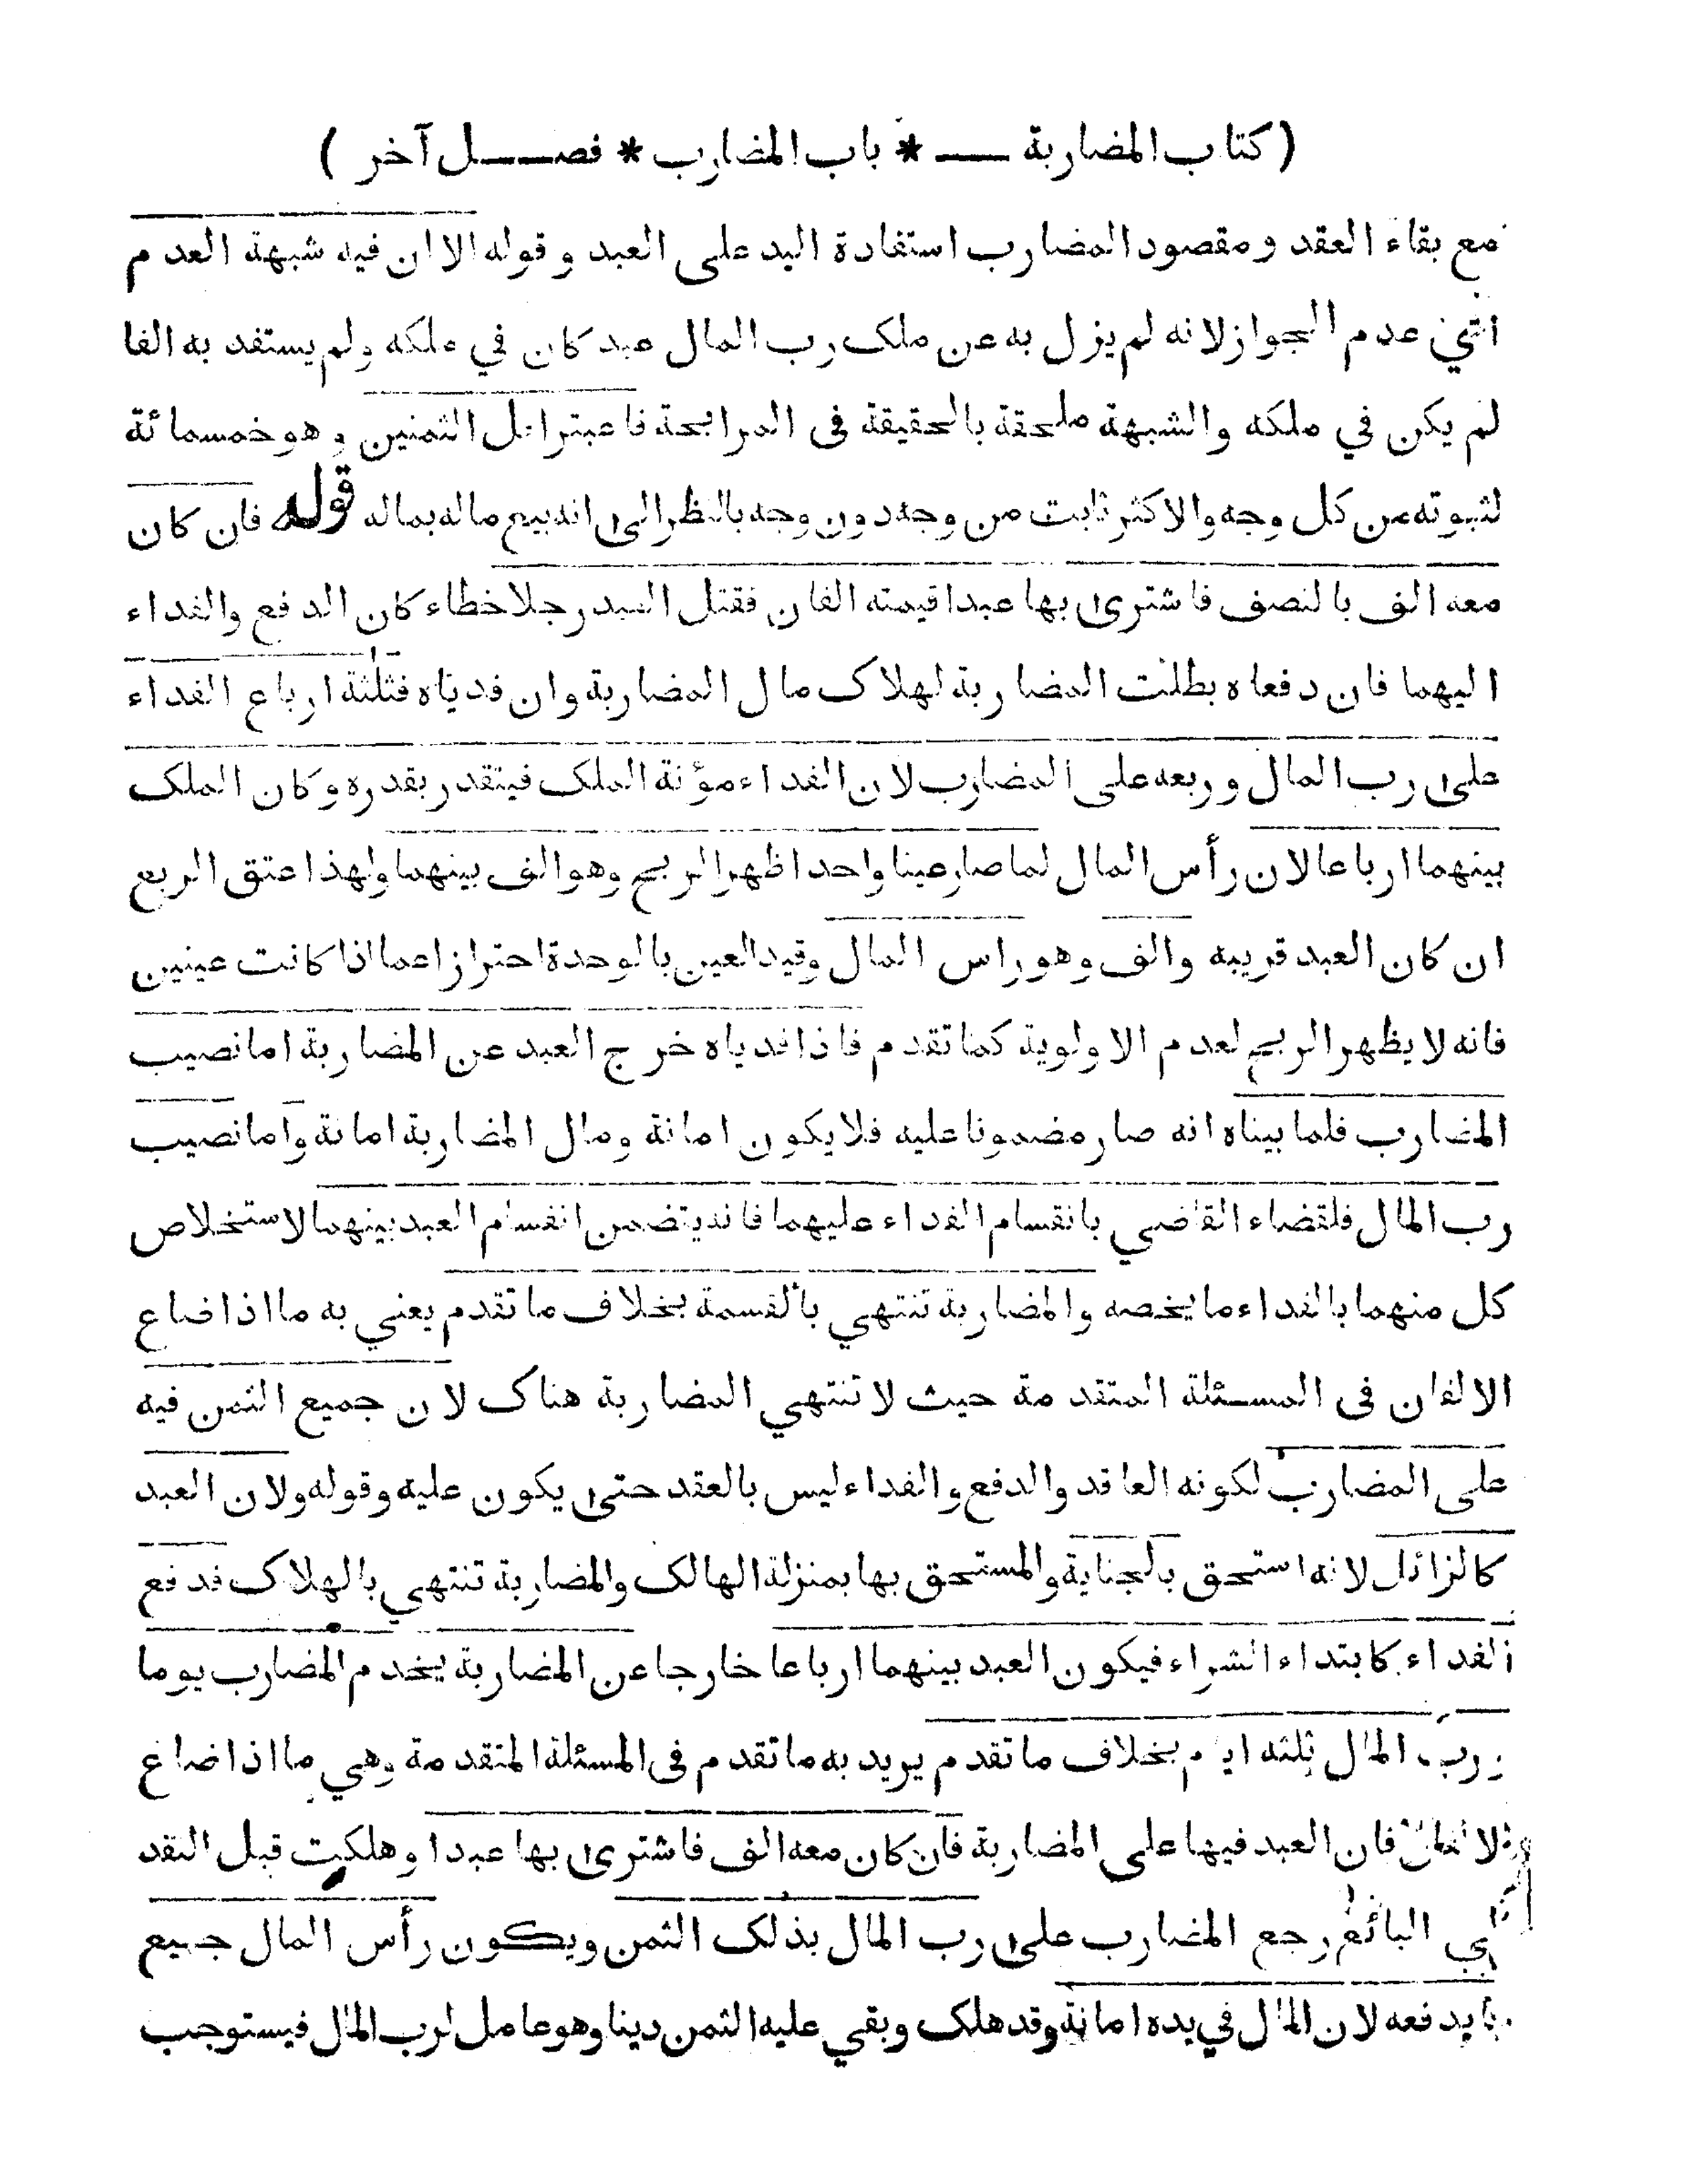 ( كتاب المضاربة ـــ * باب المضارب * فصـــل آخر )
مع بقاء العقد ومقصود المضارب استفادة اليد على العبد وقوله الا ان فيه شبهة العدم
عدم الجواز لانه لم يزل به عن ملك رب المال عبد كان في ملكه ولم يستفد به الفا
لم يكن في ملكه والشبهة ملحقة بالحقيقة فى المرابحة فاعتبر اقل الثمنين وهو خمسمائة
لثبوته من كل وجه والاكثر ثابت من وجه دون وجه بالنظر الى انه بيع ماله بماله قوله فان كان
معه الف بالنصف فاشترى بها عبدا قيمته الفان فقتل العبد رجلا خطاء كان الدفع والفداء
اليهما فان دفعاه بطلت المضاربة لهلاك مال المضاربة وان فدياه فثلثة ارباع الفداء
على رب المال وربعه على المضارب لان الفداء مؤنة الملك فيتقدر بقدره وكان الملك
بينهما ارباعا لان رأس المال لما صار عينا واحدا ظهر الربح وهو الف بينهما ولهذا عتق الربع
ان كان العبد قريبه والف وهو راس المال وقيد العين بالوحدة احترازا عما اذا كانت عينين
فانه لا يظهر الربح لعدم الاولوية كما تقدم فاذا فدياه خرج العبد عن المضاربة اما نصيب
المضارب فلما بيناه انه صار مضمونا عليه فلا يكون امانة ومال المضاربة امانة واما نصيب
رب المال فلقضاء القاضي بانقسام الفداء عليهما فانه يتضمن انقسام العبد بينهما لاستخلاص
كل منهما بالفداء ما يخصه والمضاربة تنتهي بالقسمة بخلاف ما تقدم يعني به ما اذا ضاع
الالفان فى المسئلة المتقدمة حيث لا تنتهي المضاربة هناك لان جميع الثمن فيه
على المضارب لكونه العاقد والدفع والفداء ليس بالعقد حتى يكون عليه وقوله ولان العبد
كالزائل لانه استحق بالجناية والمستحق بها بمنزلة الهالك والمضاربة تنتهي بالهلاك فدفع
الفداء كابتداء الشراء فيكون العبد بينهما ارباعا خارجا عن المضاربة يخدم المضارب يوما
ورب المال ثلثه ايام بخلاف ما تقدم يريد به ما تقدم فى المسئلة المتقدمة وهي ما اذا ضاع
الالفان فان العبد فيها على المضاربة فان كان معه الف فاشترى بها عبدا وهلكت قبل النقد
البائع رجع المضارب على رب المال بذلك الثمن ويكون رأس المال جميع
ما يدفعه لان المال في يده امانة وقد هلك وبقي عليه الثمن دينا وهو عامل لرب المال فيستوجب